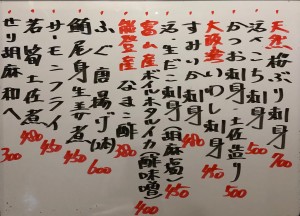 天然 桜ぶり刺身 700
活べこち刺身
かつお刺身 土佐造り 500
大阪産 いわし刺身 450
すみいか刺身 500
活生だこ刺身(胡麻油) 450
富山産 ボイルホタルイカ(酢味噌) 400
能登産 なまこ酢 380
ふぐ唐揚げ 600
鯛尾身生姜煮 450
サーモンフライ 450
若筍土佐煮 480
せり胡麻和へ 300